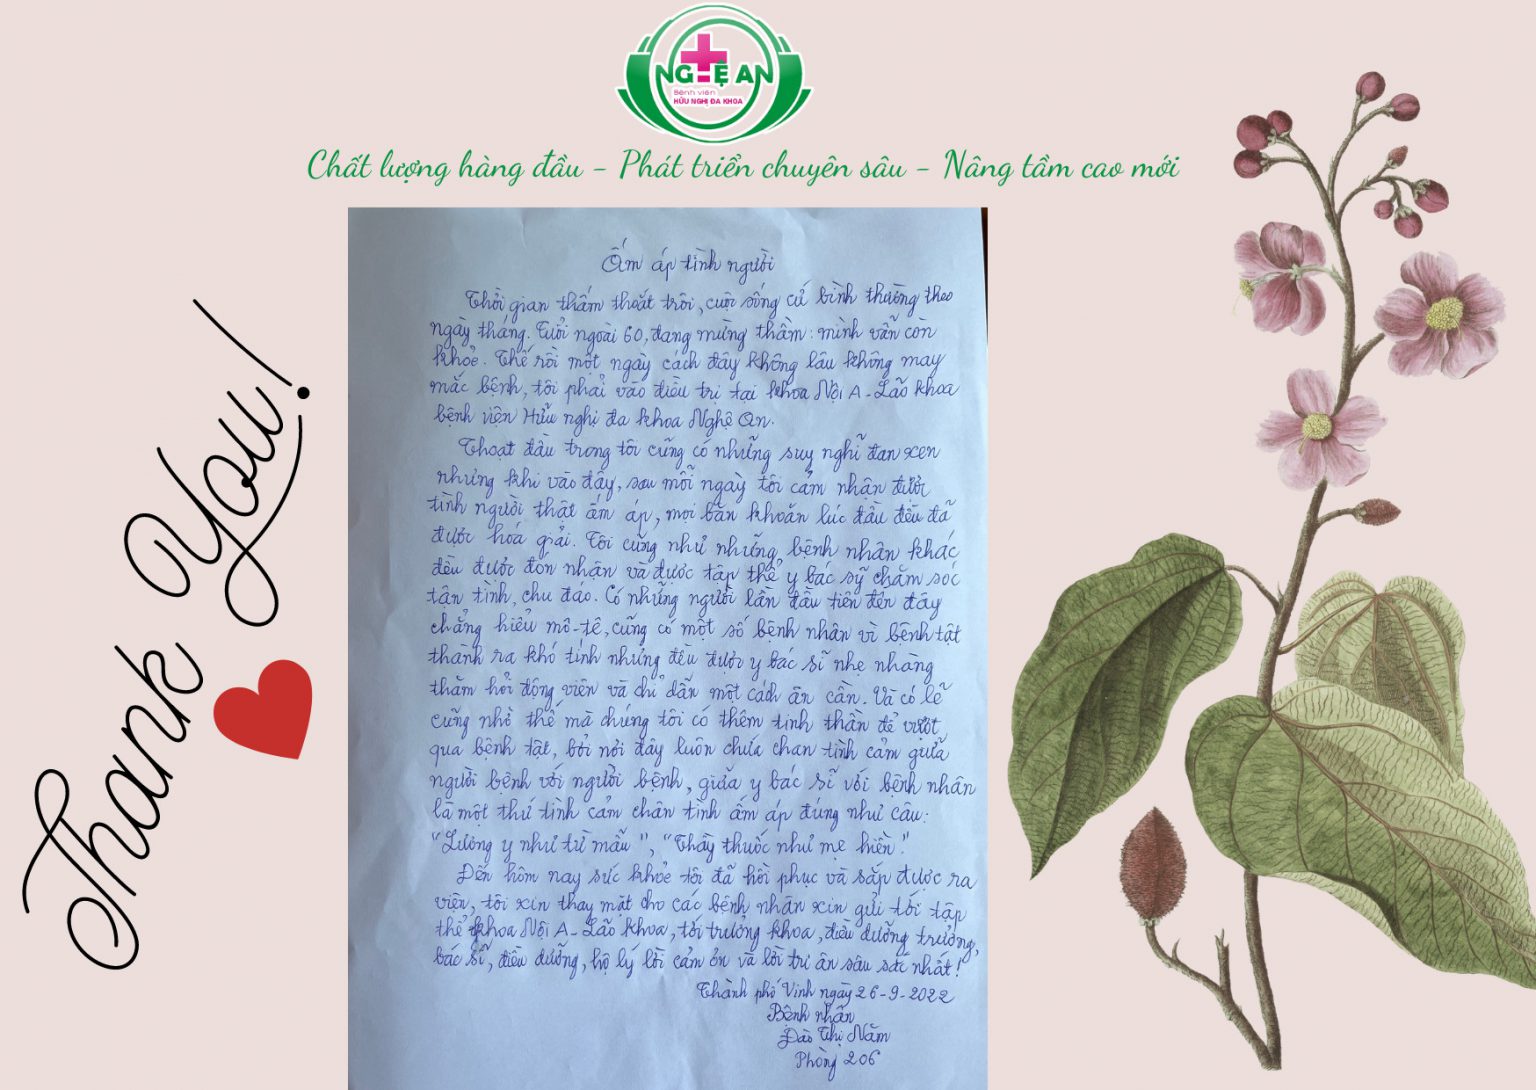 NGHỆ AN
Bệnh viện
HỮU NGHỊ ĐA KHOA
Chất lượng hàng đầu - Phát triển chuyên sâu - Nâng tầm cao mới
Thank You!
Ấm áp tình người
Thời gian thấm thoắt trôi, cuộc sống cứ bình thường theo
ngày tháng. Tuổi ngoài 60, đang mừng thầm: mình vẫn còn
khỏe. Thế rồi một ngày cách đây không lâu không may
mắc bệnh, tôi phải vào điều trị tại khoa Nội A - Lão khoa
bệnh viện Hữu nghị đa khoa Nghệ An.
Thoạt đầu trong tôi cũng có những suy nghĩ đan xen
nhưng khi vào đây, sau mỗi ngày tôi cảm nhận được
tình người thật ấm áp, mọi băn khoăn lúc đầu đều đã
được hoá giải. Tôi cũng như những bệnh nhân khác
đều được đón nhận và được tập thể y bác sỹ chăm sóc
tận tình, chu đáo. Có những người lần đầu tiên đến đây
chẳng hiểu mô-tê, cũng có một số bệnh nhân vì bệnh tật
thành ra khó tính nhưng đều được y bác sĩ nhẹ nhàng
thăm hỏi động viên và chỉ dẫn một cách ân cần. Và có lẽ
cũng nhờ thế mà chúng tôi có thêm tinh thần để vượt
qua bệnh tật, bởi nơi đây luôn chứa chan tình cảm giữa
người bệnh với người bệnh, giữa y bác sĩ với bệnh nhân
là một thứ tình cảm chân tình ấm áp đúng như câu:
"Lương y như từ mẫu", "Thầy thuốc như mẹ hiền".
Đến hôm nay sức khỏe tôi đã hồi phục và sắp được ra
viện, tôi xin thay mặt cho các bệnh nhân xin gửi tới tập
thể khoa Nội A - Lão khoa, tới trưởng khoa, điều dưỡng trưởng,
bác sĩ, điều dưỡng, hộ lý lời cảm ơn và lời tri ân sâu sắc nhất!
Thành phố Vinh ngày 26-9-2022
Bệnh nhân
Đào Thị Năm
Phòng 206